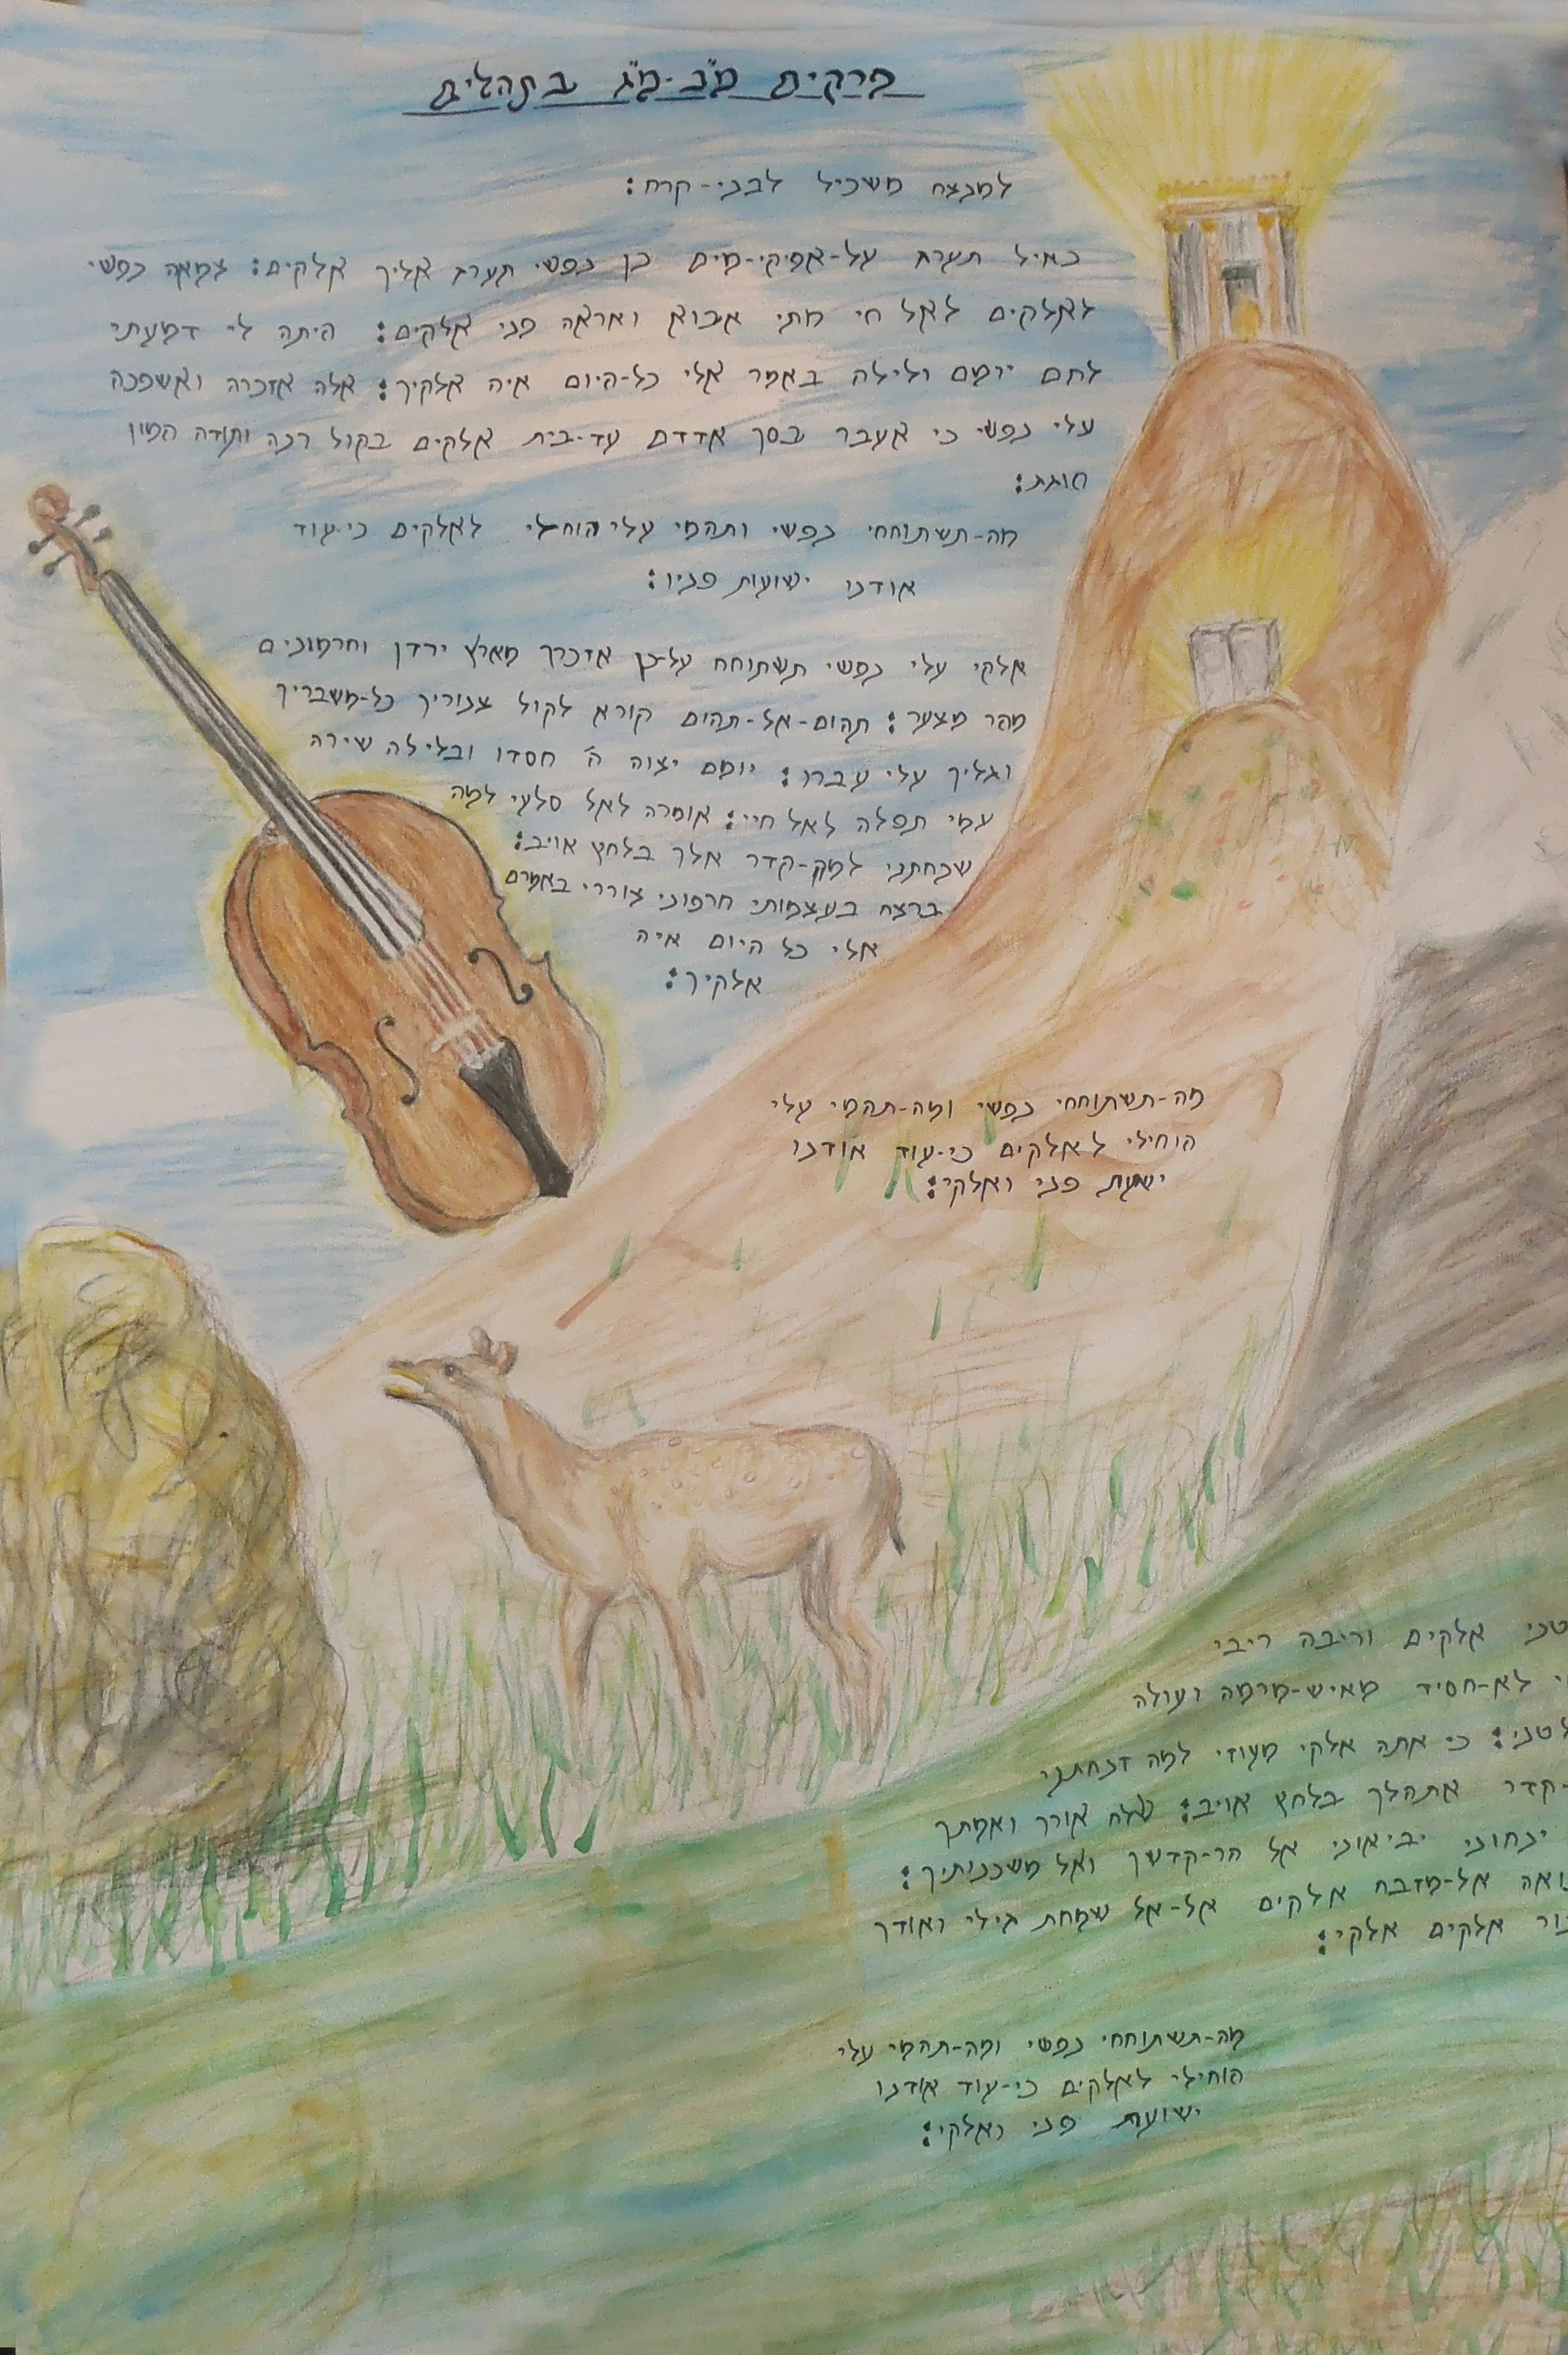 פרקים מ"ב-מ"ג בתהלים
למנצח משכיל לבני-קרח:
כאיל תערג על-אפיקי-מים כן נפשי תערג אליך אלקים: צמאה נפשי
לאלקים לאל חי מתי אבוא ואראה פני אלקים: היתה לי דמעתי
לחם יומם ולילה באמר אלי כל-היום איה אלקיך: אלה אזכרה ואשפכה
עלי נפשי כי אעבר בסך אדדם עד-בית אלקים בקול רנה ותודה המון
חוגג:
מה-תשתוחחי נפשי ותהמי עלי הוחילי לאלקים כי-עוד
אודנו ישועות פניו:
אלקי עלי נפשי תשתוחח על-כן אזכרך מארץ ירדן וחרמונים
מהר מצער: תהום-אל-תהום קורא לקול צנוריך כל-משבריך
וגליך עלי עברו: יומם יצוה ה' חסדו ובלילה שירה
עמי תפלה לאל חיי: אומרה לאל סלעי למה
שכחתני למה-קדר אלך בלחץ אויב:
ברצח בעצמותי חרפוני צוררי באמרם
אלי כל היום איה
אלקיך:
מה-תשתוחחי נפשי ומה-תהמי עלי
הוחילי לאלקים כי-עוד אודנו
ישועת פני ואלקי:
טני אלקים וריבה ריבי
לא-חסיד מאיש-מרמה ועולה
לטני: כי אתה אלקי מעוזי למה זנחתני
-קדר אתהלך בלחץ אויב: שלח אורך ואמתך
ינחוני יביאוני אל הר-קדשך ואל משכנותיך:
ואה אל-מזבח אלקים אל-אל שמחת גילי ואודך
ור אלקים אלקי:
מה-תשתוחחי נפשי ומה-תהמי עלי
הוחילי לאלקים כי-עוד אודנו
ישועת פני ואלקי: